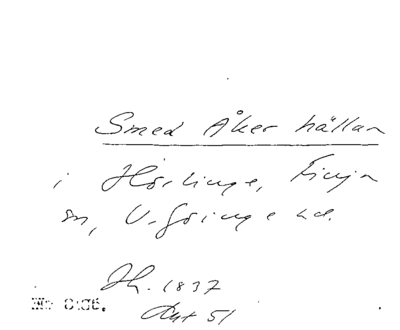 Smed Åker hällan
i Hörlinge, Finja
sn, V. Göinge hd.
Jh. 1837
Aut 51